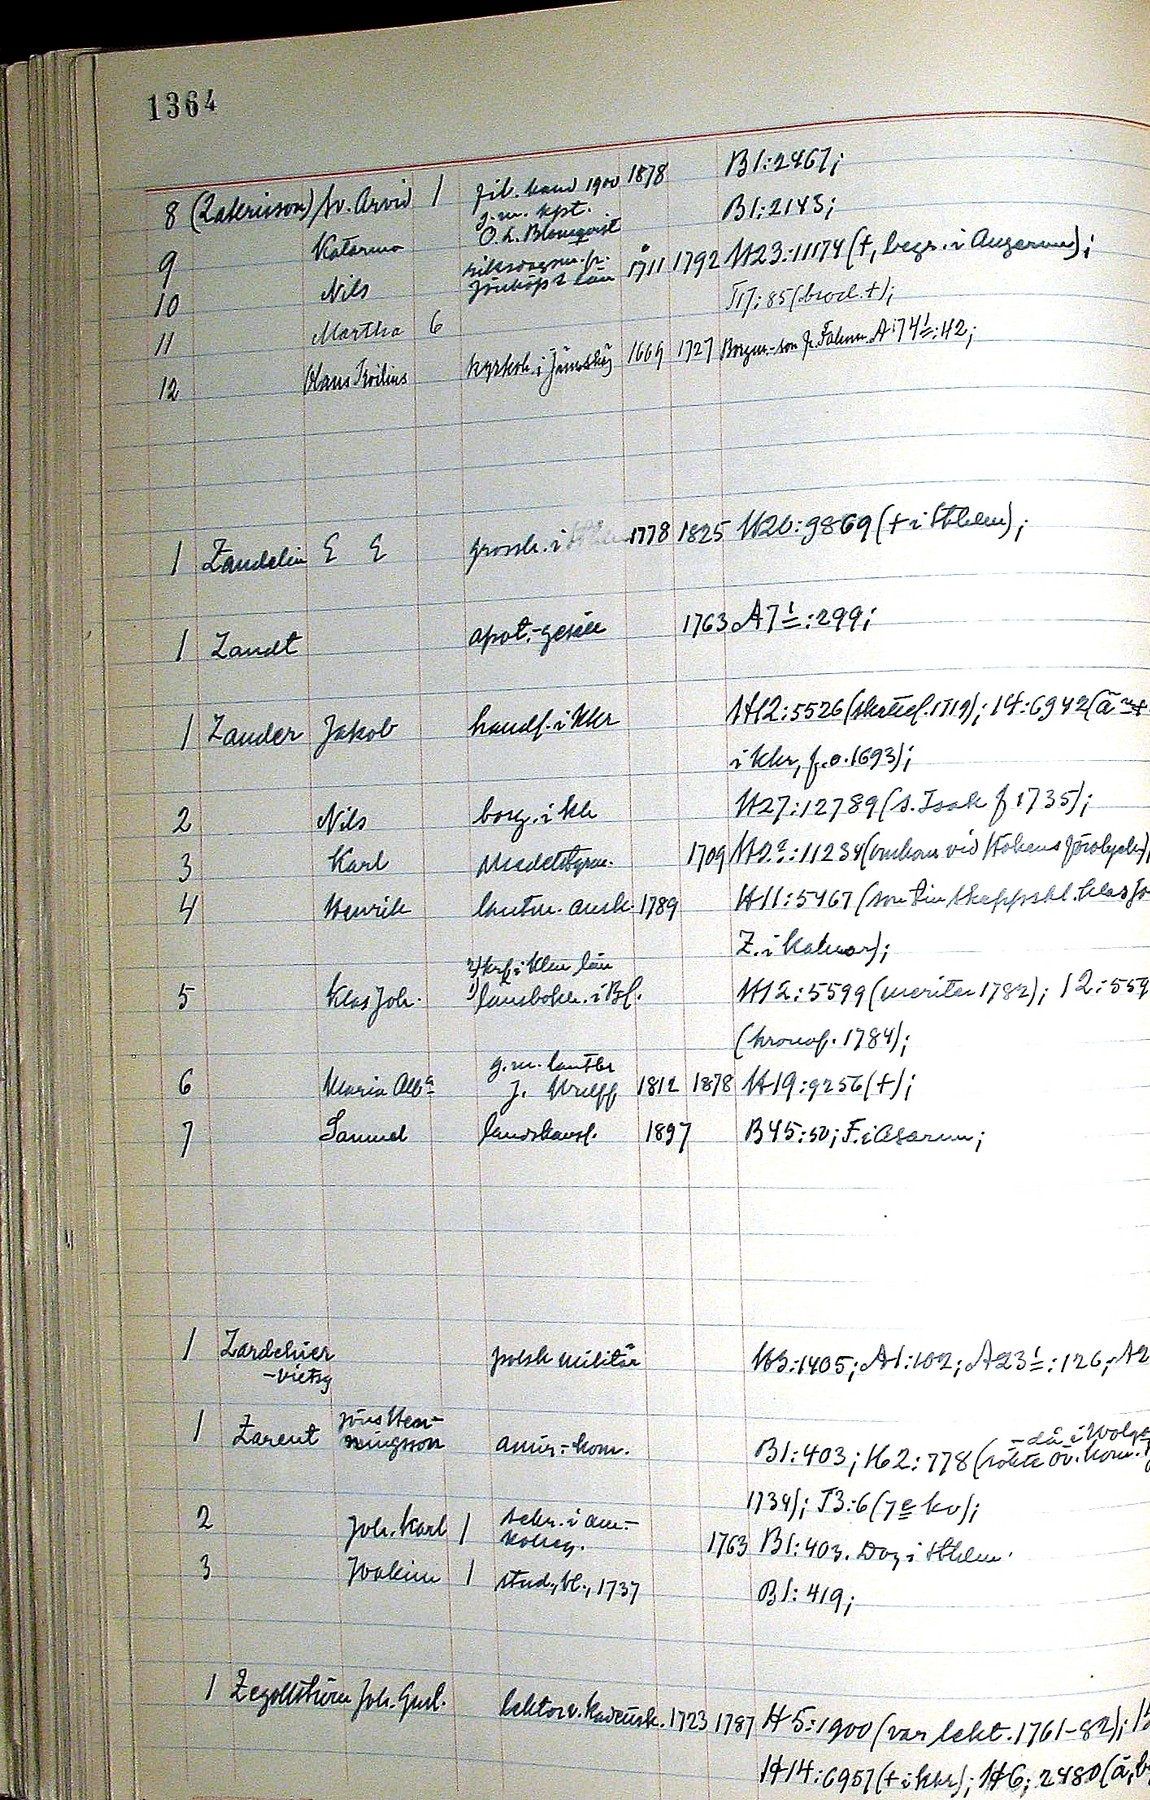 1364
8 (Zakrisson) Sv. Arvid 1 fil. kand 1900 1878 B1:2467;
9 Katarina g.m. kpt. O. L. Blomqvist B1:2143;
10 Nils riksdagsm. fr. Jönköps län 1711 1792 H23:11174 (+, begr. i Augerum);
11 Martha 6 T17:85 (brod. +);
12 Olaus Troilius kyrkoh. i Jämshög 1669 1727 Borgm.-son fr. Falun A174 1:42;
1 Zandelin E E grossh. i 1778 1825 H20:9869 (+ i Sthlm);
1 Zandt apot.-gesäll 1763 A7 1:299;
1 Zander Jakob handl. i Kkr H12:5526 1719); 14:6942 (ä
i Kkr, f. o. 1693);
2 Nils borg. i Kkr H27:12789 (s. Isak f 1735);
3 Karl 1709 11234 vid
4 Henrik lantm. ausk. 1789 H11:5467 (son t. skeppskl. Klas Jo
Z. i Kalmar);
2) krf. i Klm län
5 Klas Joh. 1) länsbokh. i Bl. H12:5599 (meriter 1782); 12:559
(kronof. 1784);
g.m. lantbr
6 Maria Alb a J. Wulff 1812 1878 H19:9256 (+);
7 Samuel landskansl. 1897 B45:50; F. i Asarum;
1 Zardehier
-vietsy polsk militär H3:1405; A1:102; A23 1:126; A2
1 Zarent Jöns Hen-
ningsson amir.-kom. B1:403; H2:778 (sökte öv. kom.
- då i Wolg
1734); T3:6 (7e kv);
2 Joh. Karl 1 sekr. i am.-
koll­eg. 1763 B1:403. Dog i Sthlm.
3 Joakim 1 stud., bl., 1737 B1:419;
1 Zegollström Joh. Gust. lektor v. kadettsk. 1723 1787 H5:1900 (var lekt. 1761-82);
H14:6957 (+ i Kkr); H6:2480 (ä, b